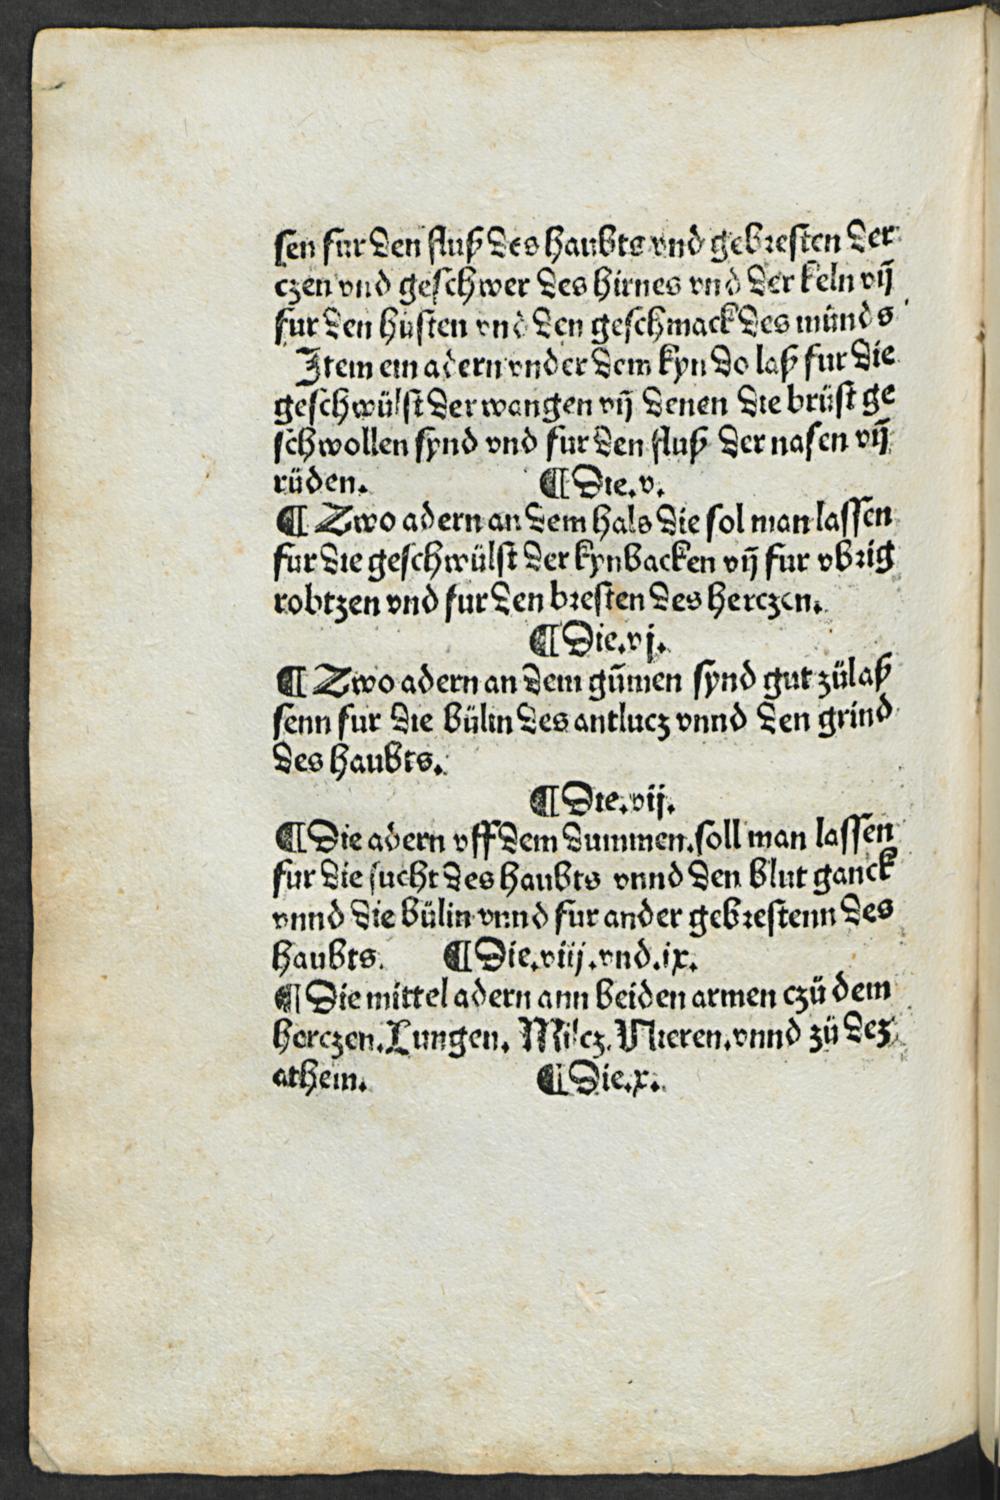 sen fur den fluß des haubts vnd gebresten der
czen vnd geschwer des hirnes vnd der keln vn̄
fur den hůsten vnd den geschmack des můnds
Item ein adern vnder dem kyn do laß fur die
geschwülst der wangen vn̄ denen die brüst ge
schwollen synd vnd fur den fluß der nasen vn̄
rüden. ¶ Die.v.
¶ Zwo adern an dem hals die sol man lassen
fur die geschwülst der kynbacken vn̄ fur vbrig
robtzen vnd fur den bresten des herczen.
¶ Die.vj.
¶ Zwo adern an dem gūmen synd gut zülaß
senn fur die bülin des antlucz vnnd den grind
des haubts.
¶ Die.vij.
¶ Die adern vff dem dummen.soll man lassen
fur die sucht des haubts vnnd den blut ganck
vnnd die bülin vnnd fur ander gebrestenn des
haubts. ¶ Die.viij.vnd.ix.
¶ Die mittel adern ann beiden armen czü dem
herczen.Lungen. Milcz.Nieren.vnnd zü dez
athem. ¶ Die.x.